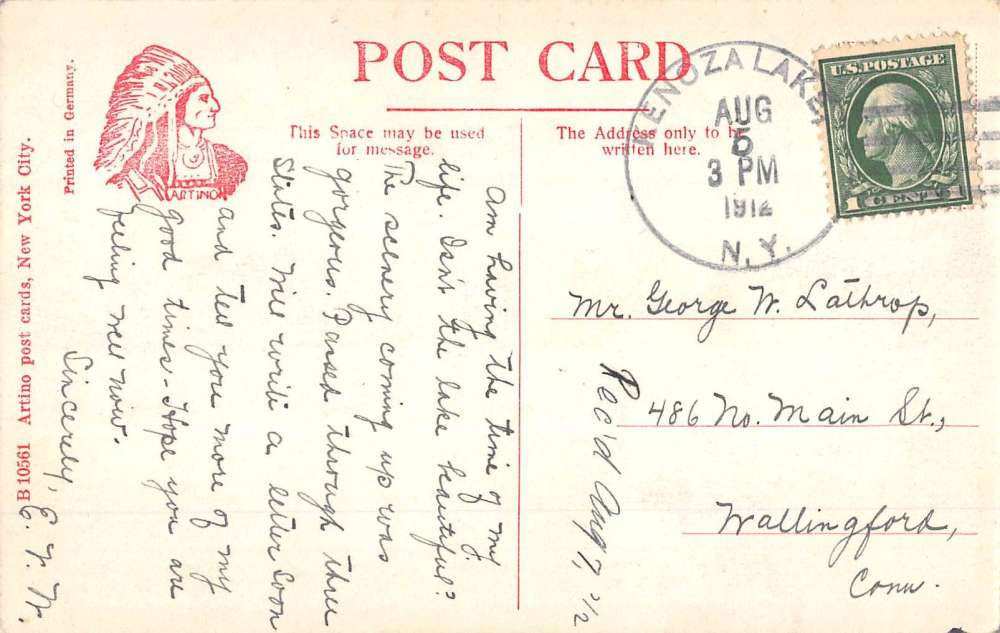 POST CARD
Printed in Germany.
ARTINO
This Space may be used
for message.
The Address only to be
written here.
KENOZA LAKE,
AUG
5
3 PM
1912
N.Y.
U.S. POSTAGE
1 CENT 1
Am having the time of my
life. Isn't the lake beautiful?
The scenery coming up was
gorgeous. Passed through three
states. Will write a letter soon
and tell you more of my
good times - Hope you are
feeling well now.
Sincerely,
Mr. George W. Lathrop,
486 No. Main St.,
Wallingford,
Conn.
Rec'd Aug 7, 12
B 10561 Artino post cards, New York City.